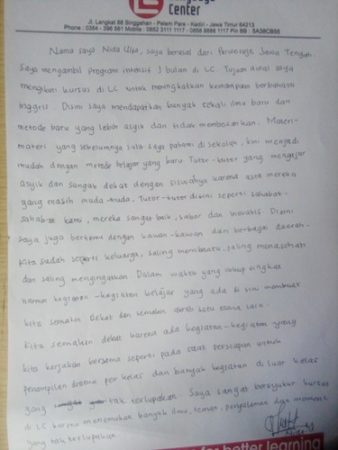 Language
Center
Jl. Langkat 88 Singgahan - Palem Park - Kediri - Jawa Timur 64213
Phone : 0354 - 396 561 Mobile :
Nama saya Nida Ulya, saya berasal dari Purworejo Jawa Tengah.
Saya mengambil program intensif 3 bulan di LC. Tujuan awal saya
mengikuti kursus di LC untuk meningkatkan kemampuan berbahasa
Inggris. Disini saya mendapatkan banyak sekali ilmu baru dan
metode baru yang lebih asyik dan tidak membosankan. Materi-
materi yang sebelumnya sulit saya pahami di sekolah, kini menjadi
mudah dengan metode belajar yang baru. Tutor-tutor yang mengajar
asyik dan sangat dekat dengan siswanya karena rata mereka
yang masih muda-muda. Tutor-tutor disini seperti sahabat-
sahabat kami, mereka sangat baik, sabar dan inovatif. Disini
saya juga bertemu dengan kawan-kawan dari berbagai daerah.
Kita sudah seperti keluarga, saling membantu, saling menasehati
dan saling mengingatkan. Dalam waktu yang cukup singkat
namun kegiatan-kegiatan belajar yang ada di sini membuat
kita semakin dekat dan semakin satu sama lain.
Kita semakin dekat karena ada kegiatan-kegiatan yang
kita kerjakan bersama seperti pada saat persiapan untuk
penampilan drama per kelas dan banyak kegiatan di luar kelas
yang tak terlupakan. Saya sangat bersyukur kursus
di LC karena menemukan banyak ilmu, teman, pengalaman dan momen
yang tak terlupakan.
for better learning